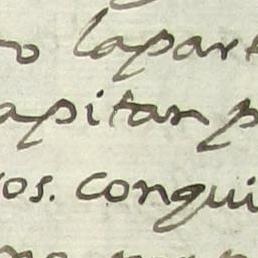 o lapart
apitan p
os. conqui